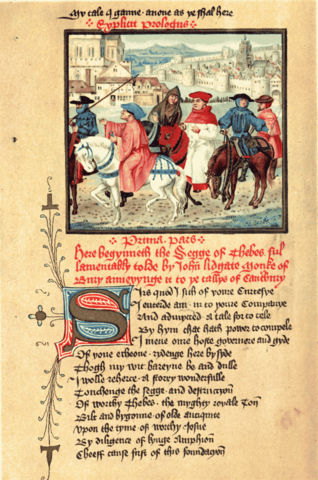 My tale I ganne anone as ye shal here
Explicit Prologus
Prima Pars
Here begynneth the Segge of Thebes ful
lamentably tolde by John lidgate Monke of
Bury annexynge it to ye tallys of Canterbury
Sirs quod I sith of youre curtesye
I entrede am in to youre Companye
And admytted a tale for to tele
By hym that hath power to compele
I mene oure hoste governere and gyde
Of youe echeone rydenge here by syde
Thogh my wit bareyne be and dulle
I wolle reherce a storey wonderfulle
Touchenge the segge and destruccyon
Of worthy Thebes the myghty royale Ton
Bilt and bygonne of olde antiquite
Upon the tyme of worthy Josue
By diligence of kynge Amphion
Cheeff cause first of this foundacyon